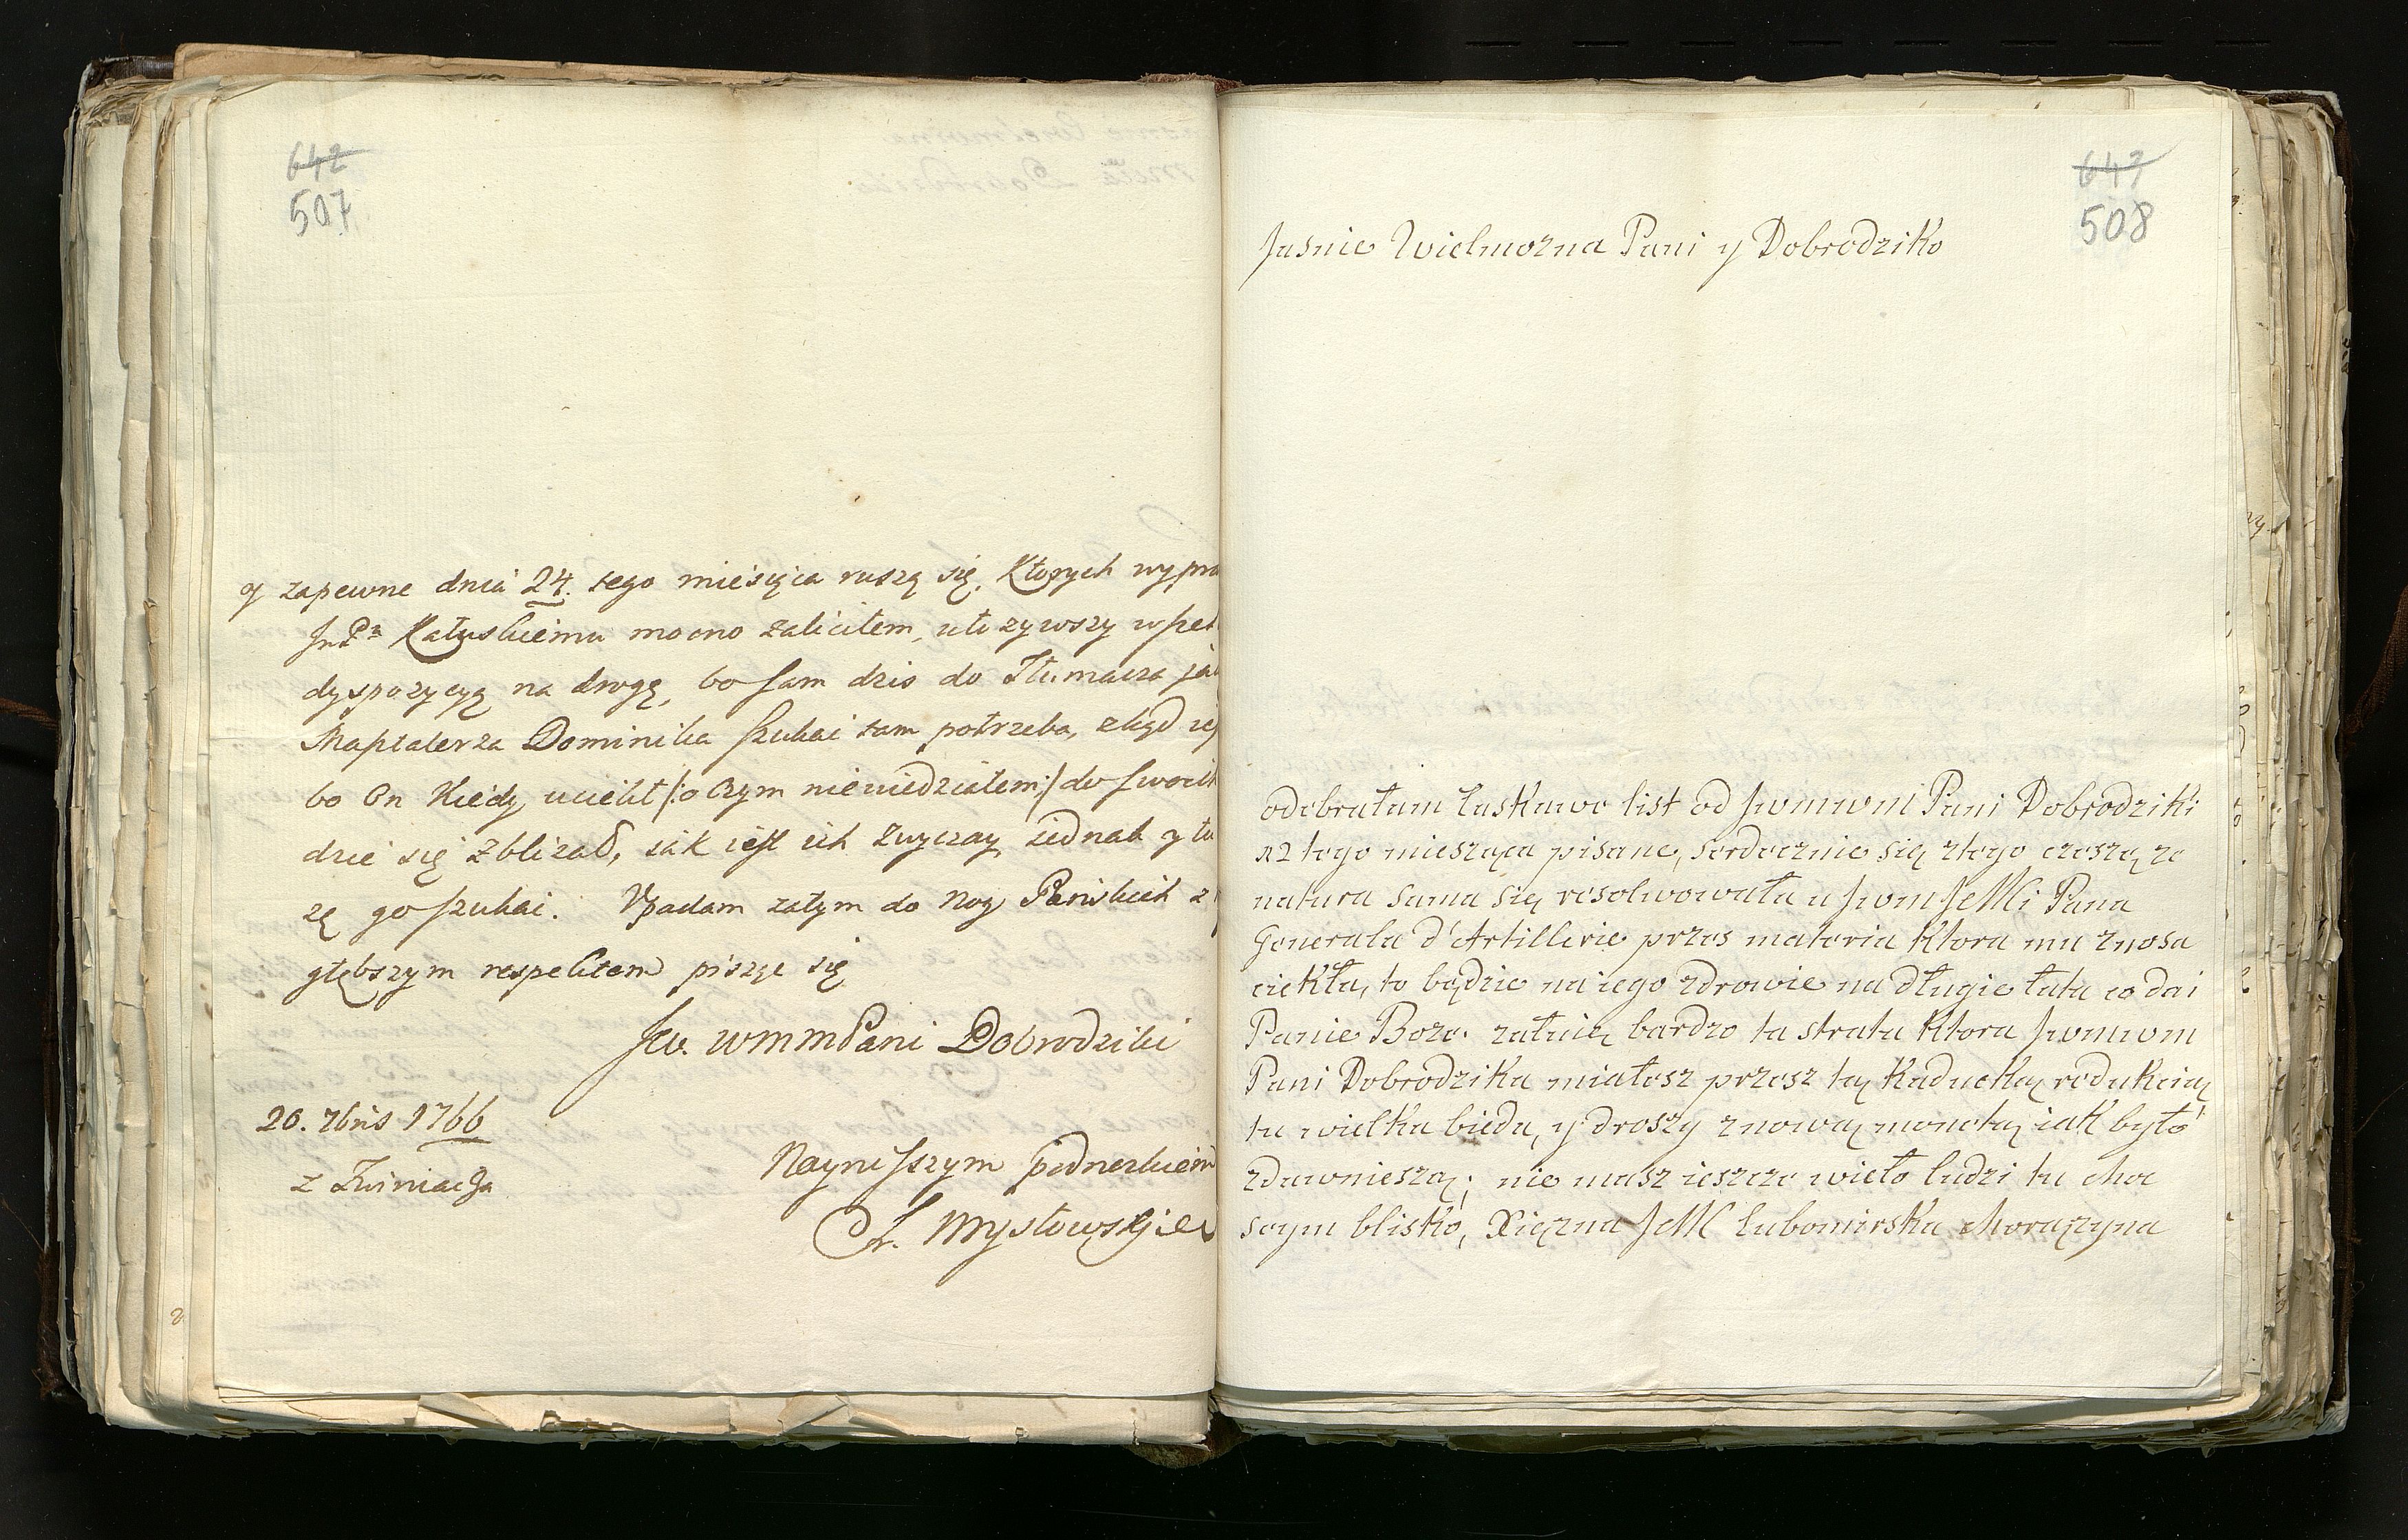 642
507
y zapewne dnia 24. tego miesiąca ruszą się, Ktorych wypra
Jm Pn Kałuskiemu mocno zaliciłem, ułożywszy wszel
dyspozycyą na drogę, bo sam dzis do Tłumacza
Masztalerza Dominika szukai tam potrzeba, zkąd
bo On Kiedy uciekł /: o czym niewiedziałem :/ do swoich
dzie się zbliżać, iak iest ich zwyczay, iednak y tu
żę go szukai. Upadam zatym do nog Pańskich z
głębszym respektem piszęc się
Jw. WMMPani Dobrodziki
20. 7bris 1766
z Zwiniacza
Nayniszszym podnozkiem
Myslowski
643
508
Jasnie Wielmozna Pani y Dobrodziko
odebrałam łaskawe list od Jwmwm Pani Dobrodziki
12 tego miesząca pisane, serdecznie się ztego czeszę ze
natura sama się resolwowała u Jwm JeMci Pana
Generala d'Artillerie przes materia Ktora mu znosa
ciekła, to będzie na iego zdrowie na długie łata co dai
Panie Boze. załuię bardzo ta strata Ktora Jwmwm
Pani Dobrodzika miałesz przesz tą Kaducką redukcią
tu wielka bieda, y droszy znową monetą iak było
zdawnieszą; nie masz ieszcze wieło ludzi tu choc
seym blisko, Xięzna JeM Lubomirska chorązyna